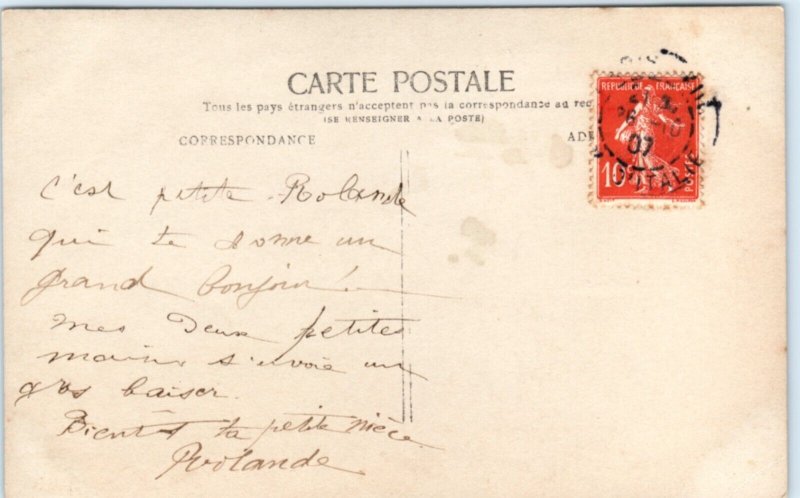 CARTE POSTALE
Tous les pays étrangers n'acceptent pas la correspondance au rec
(SE RENSEIGNER A LA POSTE)
CORRESPONDANCE
ADR
REPUBLIQUE FRANÇAISE
10
POSTES
07
c'est petite Rolande
qui te donne un
grand bonjour!
mes deux petites
mains s'envoie un
gros baiser.
Bientôt ta petite nièce
Rolande